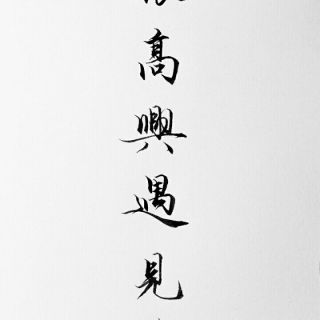 高興遇見